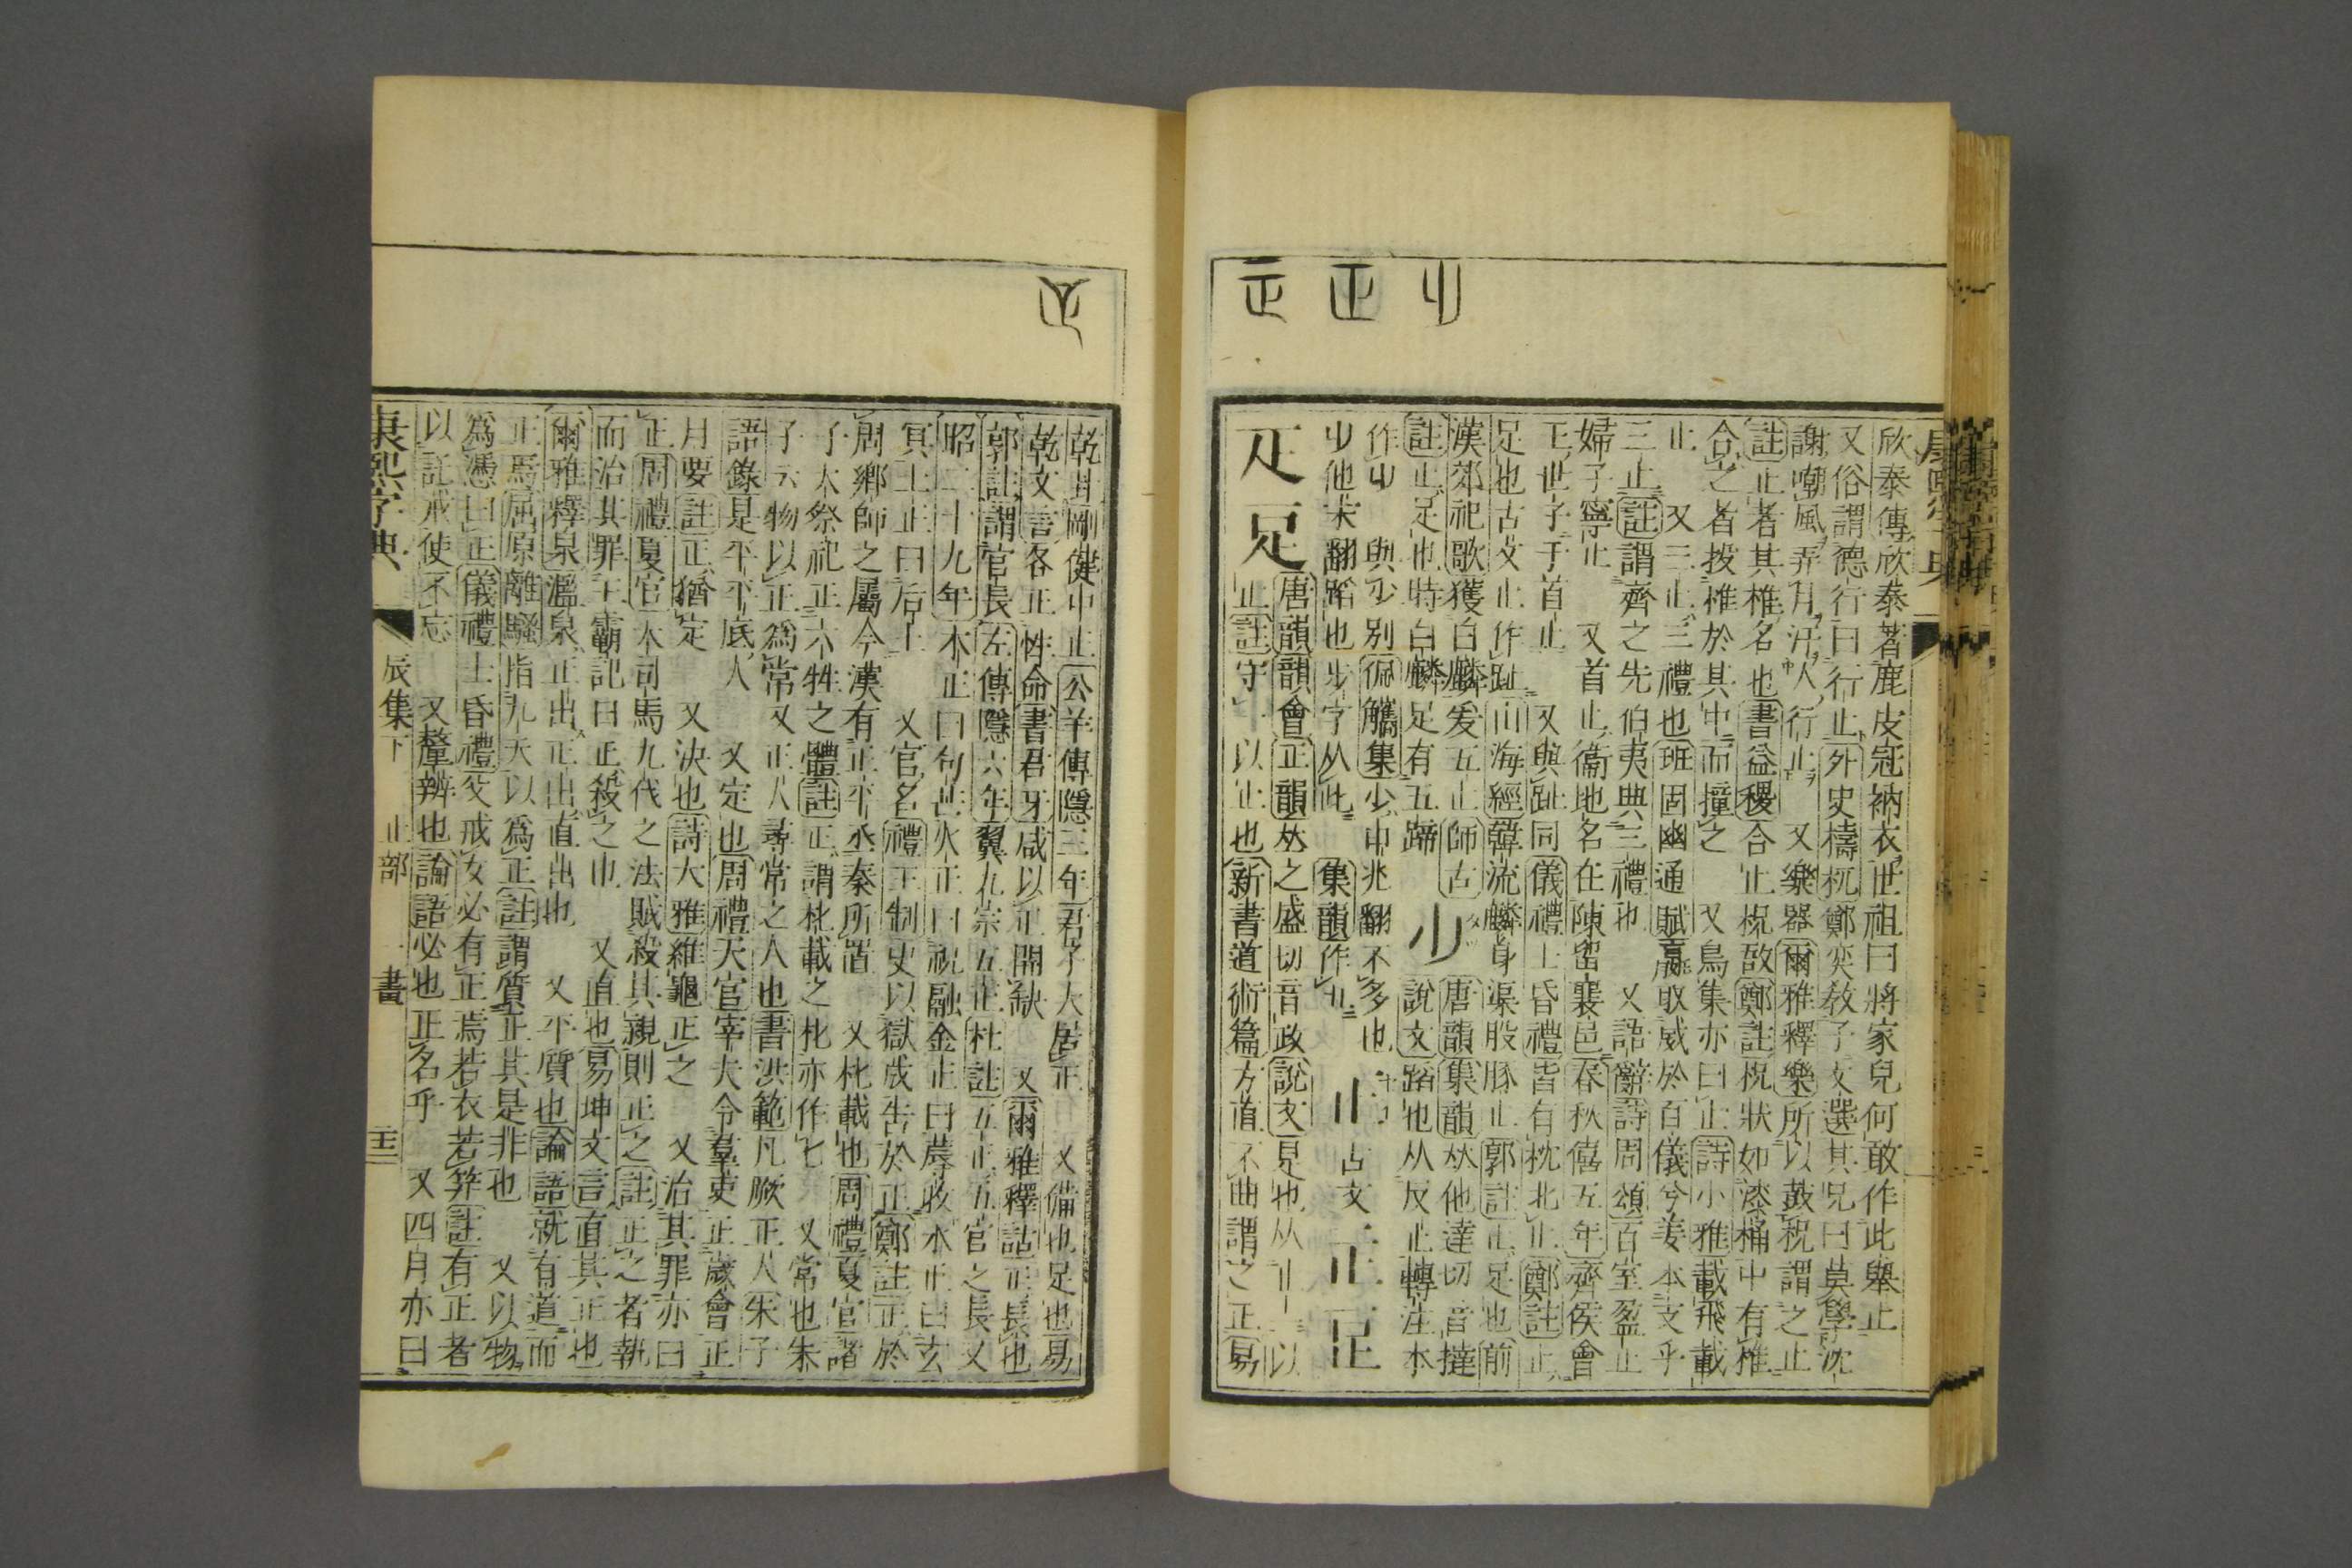 欣泰傳欣泰著鹿皮冠衲衣世祖曰將家兒何敢作此舉止
又俗謂德行曰行止外史檮杌鄭奕敎子文選其兄曰莫學沈
謝嘲風弄月汚人行止 又樂器爾雅釋樂所以鼓柷謂之止
註止者其椎名也書益稷合止柷敔鄭註柷狀如漆桶中有椎
合之者投椎於其中而撞之 又鳥集亦曰止詩小雅載飛載
止 又三止三禮也班固幽通賦嬴取威於百儀兮姜本文乎
三止註謂齊之先伯夷典三禮也 又語辭詩周頌百室盈止
婦子寧止 又首止衞地名在陳留襄邑春秋僖五年齊侯會
王世子于首止 又與趾同儀禮士昏禮皆有枕北止鄭註止
足也古文止作趾山海經韓流麟身渠股豚止郭註止足也前
漢郊祀歌獲白麟爰五止師古
註止足也時白麟足有五蹄
少
唐韻集韻𠀤他達切音撻
說文蹈也从反止轉注本
作屮 與少別佩觿集少巾兆翻不多也
屮他末翻蹈也步字从此 集韻作
正
古文
𤴓
唐韻韻會正韻𠀤之盛切音政說文是也从止一以
止註守一以止也新書道術篇方直不曲謂之正易
乾卦剛健中正公羊傳隱三年君子大居正 又備也足也易
乾文言各正性命書君牙咸以正罔缺 又爾雅釋詁正長也
郭註謂官長左傳隱六年翼九宗五正杜註五正五官之長又
昭二十九年木正曰句芒火正曰祝融金正曰蓐收水正曰玄
冥土正曰后土 又官名禮王制史以獄成告於正鄭註正於
周鄉師之屬今漢有正平丞秦所置 又朼載也周禮夏官諸
子大祭祀正六牲之體註正謂朼載之朼亦作匕 又常也朱
子云物以正爲常又正人尋常之人也書洪範凡厥正人朱子
語錄是平平底人 又定也周禮天官宰夫令羣吏正歲會正
月要註正猶定 又決也詩大雅維龜正之 又治其罪亦曰
正周禮夏官大司馬九伐之法賊殺其親則正之註正之者執
而治其罪王霸記曰正殺之也 又直也易坤文言直其正也
爾雅釋泉濫泉正出正出直出也 又平質也論語就有道而
正焉屈原離騷指九天以爲正註謂質正其是非也 又以物
爲憑曰正儀禮士昏禮父戒女必有正焉若衣若筓註有正者
以託戒使不忘 又釐辨也論語必也正名乎 又四月亦曰
康熙字典 辰集下 止部 一畫